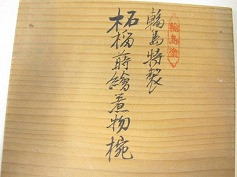 輪島塗
輪島特製
柘榴蒔繪煮物椀